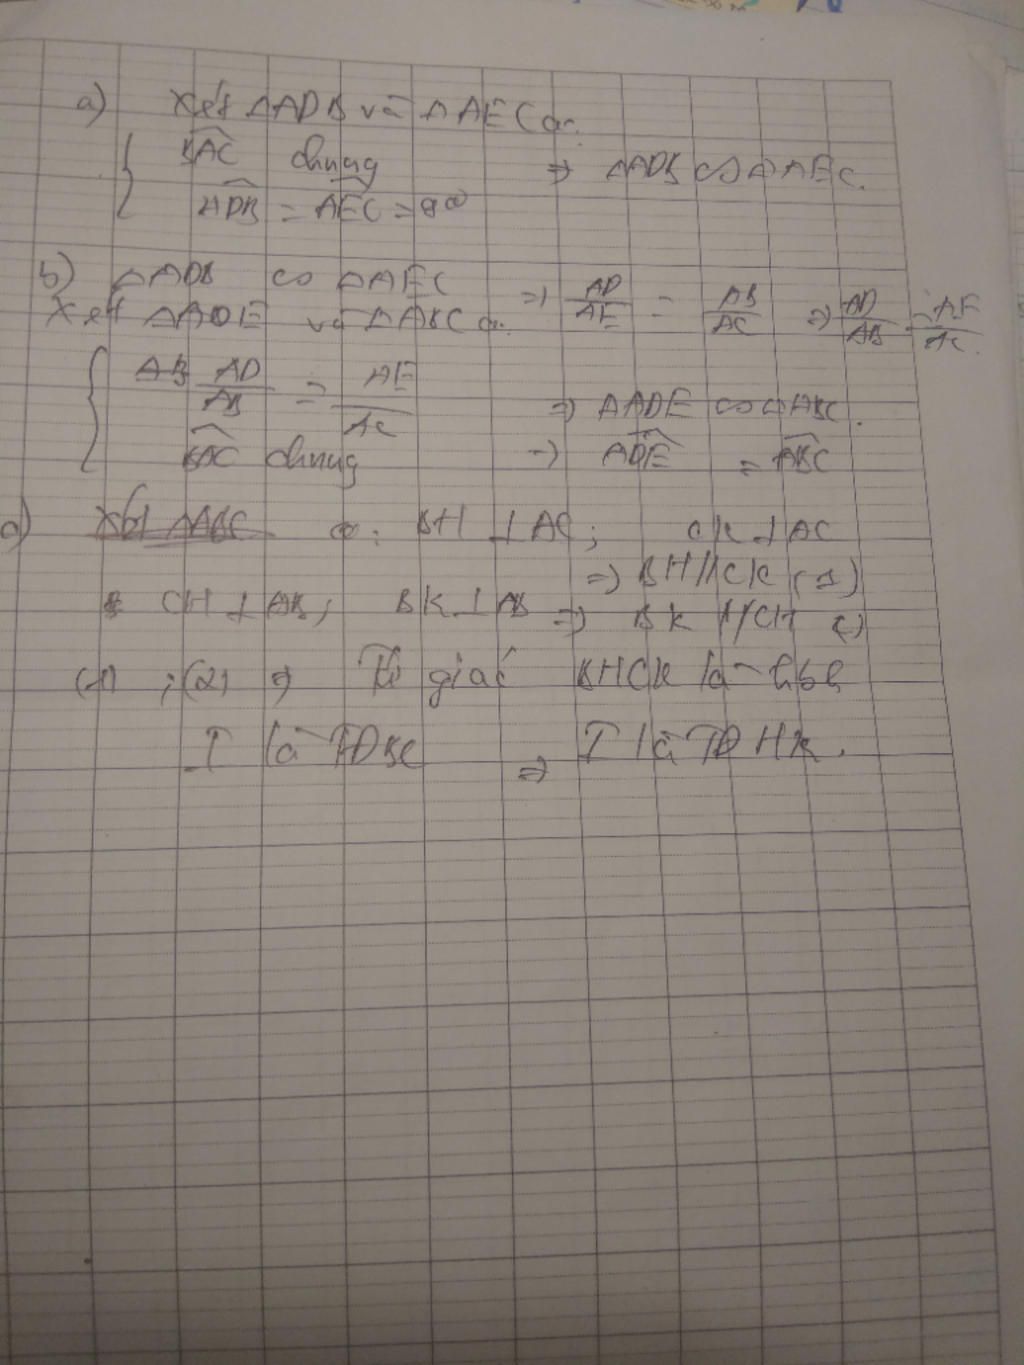 a) Xét ΔADB và ΔAEC có:
BAC chung ⇒ ΔADB ∽ ΔAEC.
ADB = AEC = 90
b) ΔADB ∽ ΔAEC ⇒ AD/AE = AB/AC ⇒ AD/AB = AE/AC.
Xét ΔADE và ΔABC có:
AD/AB = AE/AC ⇒ ΔADE ∽ ΔABC.
BAC chung ⇒ ADE = ABC
có: BH ⊥ AC; CK ⊥ AC
⇒ BH // CK (1)
CH ⊥ AB; BK ⊥ AB ⇒ BK // CH
(1); (2) ⇒ Tứ giác BHCK là hbh
I là TĐBC ⇒ I là TĐ HK.